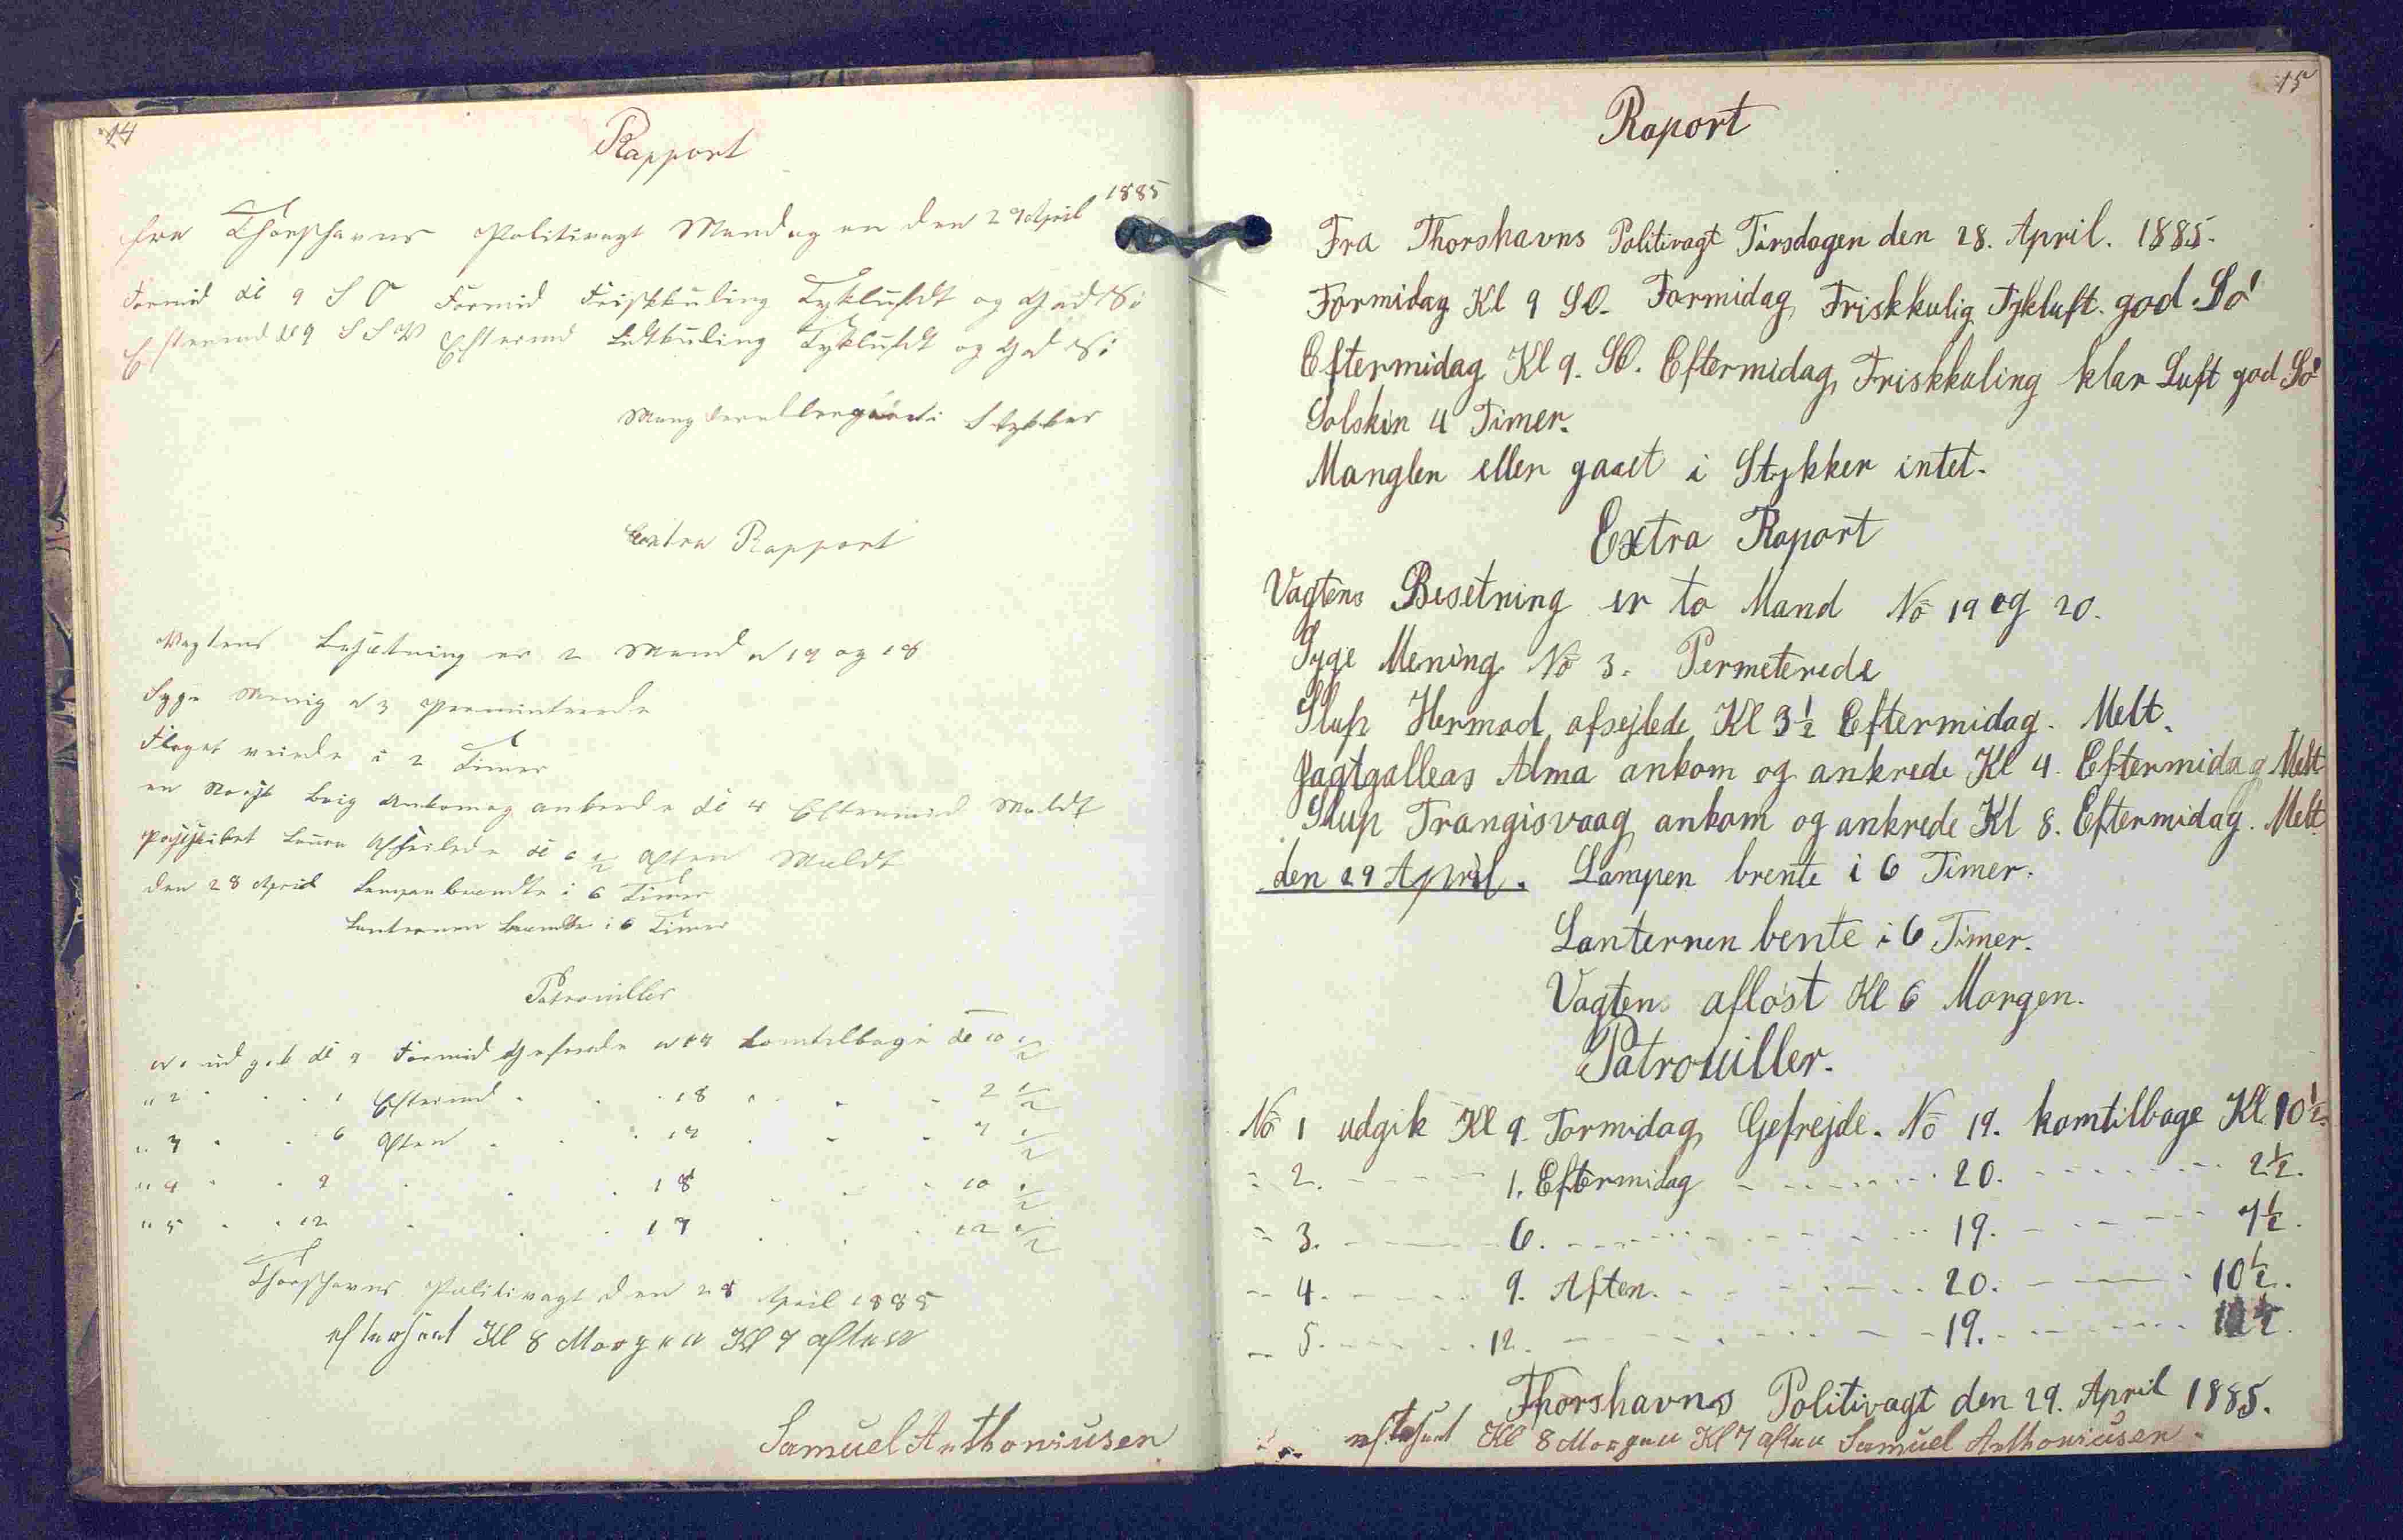 14
Rapport
fra Thorshavns Politivagt Mandagen den 27 April 1885
Formid Kl 9 S O Formid Friskkuling Tykluft og God Sø
Eftermd Kl 9 S S V Eftermd Lidtkuling Tykluft og God Sø
Mangler eller gaaet i Stykker
Extra Rapport
Vagtens Besætning er 2 Mand N 19 og 18
Syge Menig N 3 Permiterede
Flaget veiede i 2 Timer
en Norsk Brig Ankom og ankrede Kl 4 Eftermid Meldt
Postskibet Laura Afseilede Kl 6 1/2 Aften Meldt
den 28 April Lampen brændte i 6 Timer
Lanternen brændte i 6 Timer
Patrouiller
N 1 udgik Kl 9 Formid Gefreide N 19 kom tilbage Kl 10 1/2
" 2 " " 1 Eftermd " " 18 " " " 2 1/2
" 3 " " 6 Aften " " 19 " " " 7 1/2
" 4 " " 9 " " " 18 " " " 10 1/2
" 5 " " 12 " " " 19 " " " 12 1/2
Thorshavns Politivagt den 28 April 1885
efterseet Kl 8 Morgen Kl 7 aften
Samuel Anthoniusen
15
Raport
Fra Thorshavns Politivagt Tirsdagen den 28. April. 1885.
Formidag Kl 9 SO. Formidag, Friskkulig Tykluft. god Sø
Eftermidag Kl 9. SO. Eftermidag, Friskkuling klar Luft god Sø
Solskin 4 Timer.
Mangler eller gaaet i Stykker intet.
Extra Raport
Vagtens Besetning er to Mand No 19 og 20.
Syge Mening No 3. Permeterede
Slup Hermod, afsejlede, Kl 3 1/2 Eftermidag. Melt.
Jagtgalleas Alma ankom og ankrede Kl 4. Eftermidag Melt
Slup Trangisvaag, ankom og ankrede Kl 8. Eftermidag. Melt.
den 29 April. Lampen brente i 6 Timer.
Lanternen bente i 6 Timer.
Vagten afløst Kl 6 Morgen.
Patrouiller.
No 1 udgik Kl 9. Formidag, Gefrejde. No 19. komtilbage Kl 10 1/2
" 2. - - - 1. Eftermidag - - - 20. - - - 2 1/2.
" 3. - - - 6. - - - 19. - - - 7 1/2.
" 4. - - - 9. Aften. - - - 20. - - - 10 1/2.
" 5. - - - 12. - - - 19. - - - 12 1/2.
Thorshavns Politivagt den 29. April 1885.
efterseet Kl 8 Morgen Kl 7 aften Samuel Anthoniusen.